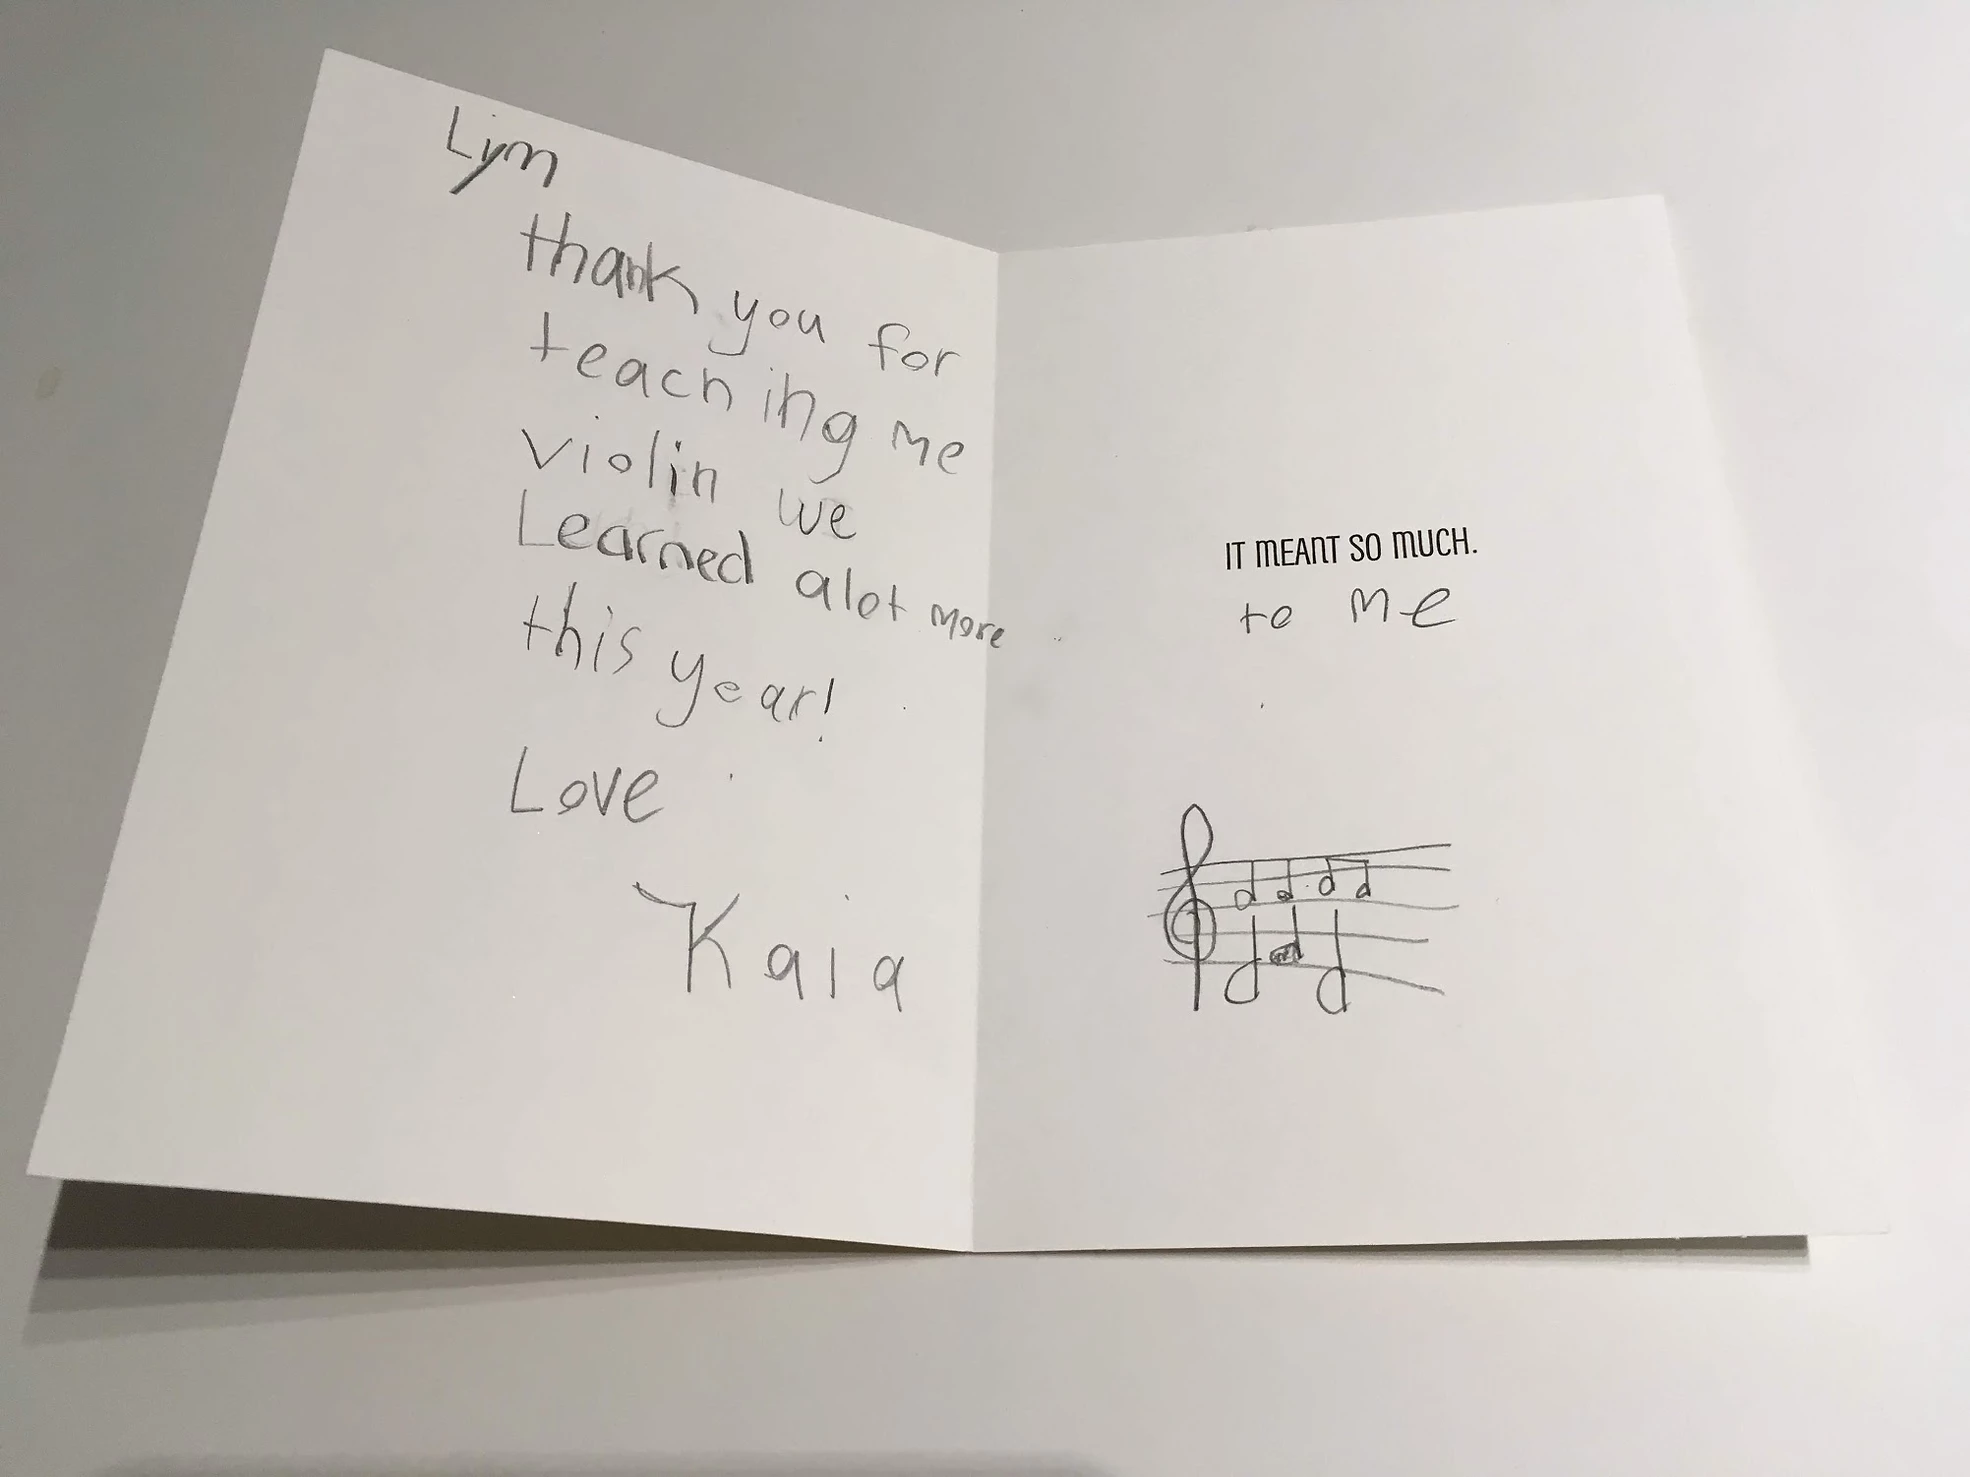 Lym
thank you for
teaching me
violin we
Learned alot more
this year!
Love
Kaia
IT MEANT SO MUCH.
to me